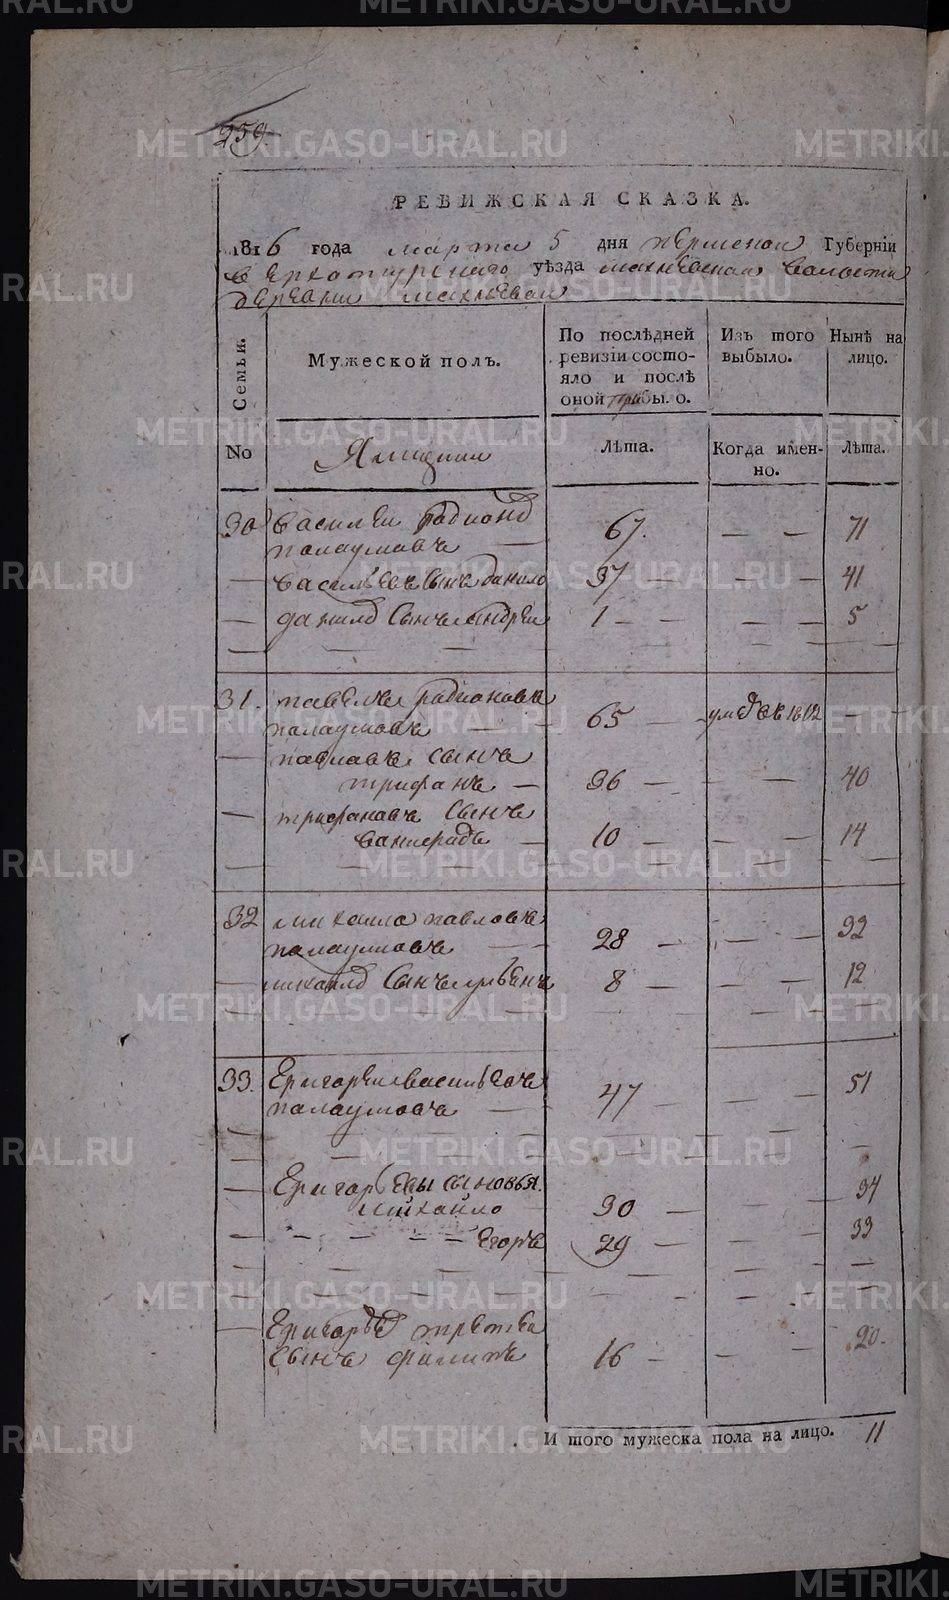 259
РЕВИЖСКАЯ СКАЗКА.
1816 года марта 5 дня пермской Губерніи
верхотурскаго уѣзда махневской волости
деревни махневой
Семьи.
Мужеской полъ.
По послѣдней ревизіи состояло и послѣ оной прибыло.
Изъ того выбыло.
Нынѣ на лицо.
No
Ямщики
Лѣта.
Когда именно.
Лѣта.
30 василеи радионо 67. — — 71
палаумовъ —
— васильевъ сынъ данило 37 — — — 41
— данило сынъ андреи 1 — — — — 5
31. павелъ радионовъ
палаумовъ — — 65 — умре въ 1812 — —
— павловъ сынъ
трифанъ — 36 — — — 40
— трифановъ сынъ
— 10 — — — 14
32 михаило павловъ
палаумовъ — — 28 — — — 32
— михаило сынъ 8 — — — 12
33. Григореи васильевъ
палаумовъ — 47 — — — 51
— Григорьевы сыновья
михаило 30 — — — 34
— — — — — Егоръ 29 — — — 33
— Григорьево третеи
сынъ филипъ 16 — — — 20.
И того мужеска пола на лицо. 11
METRIKI.GASO-URAL.RU